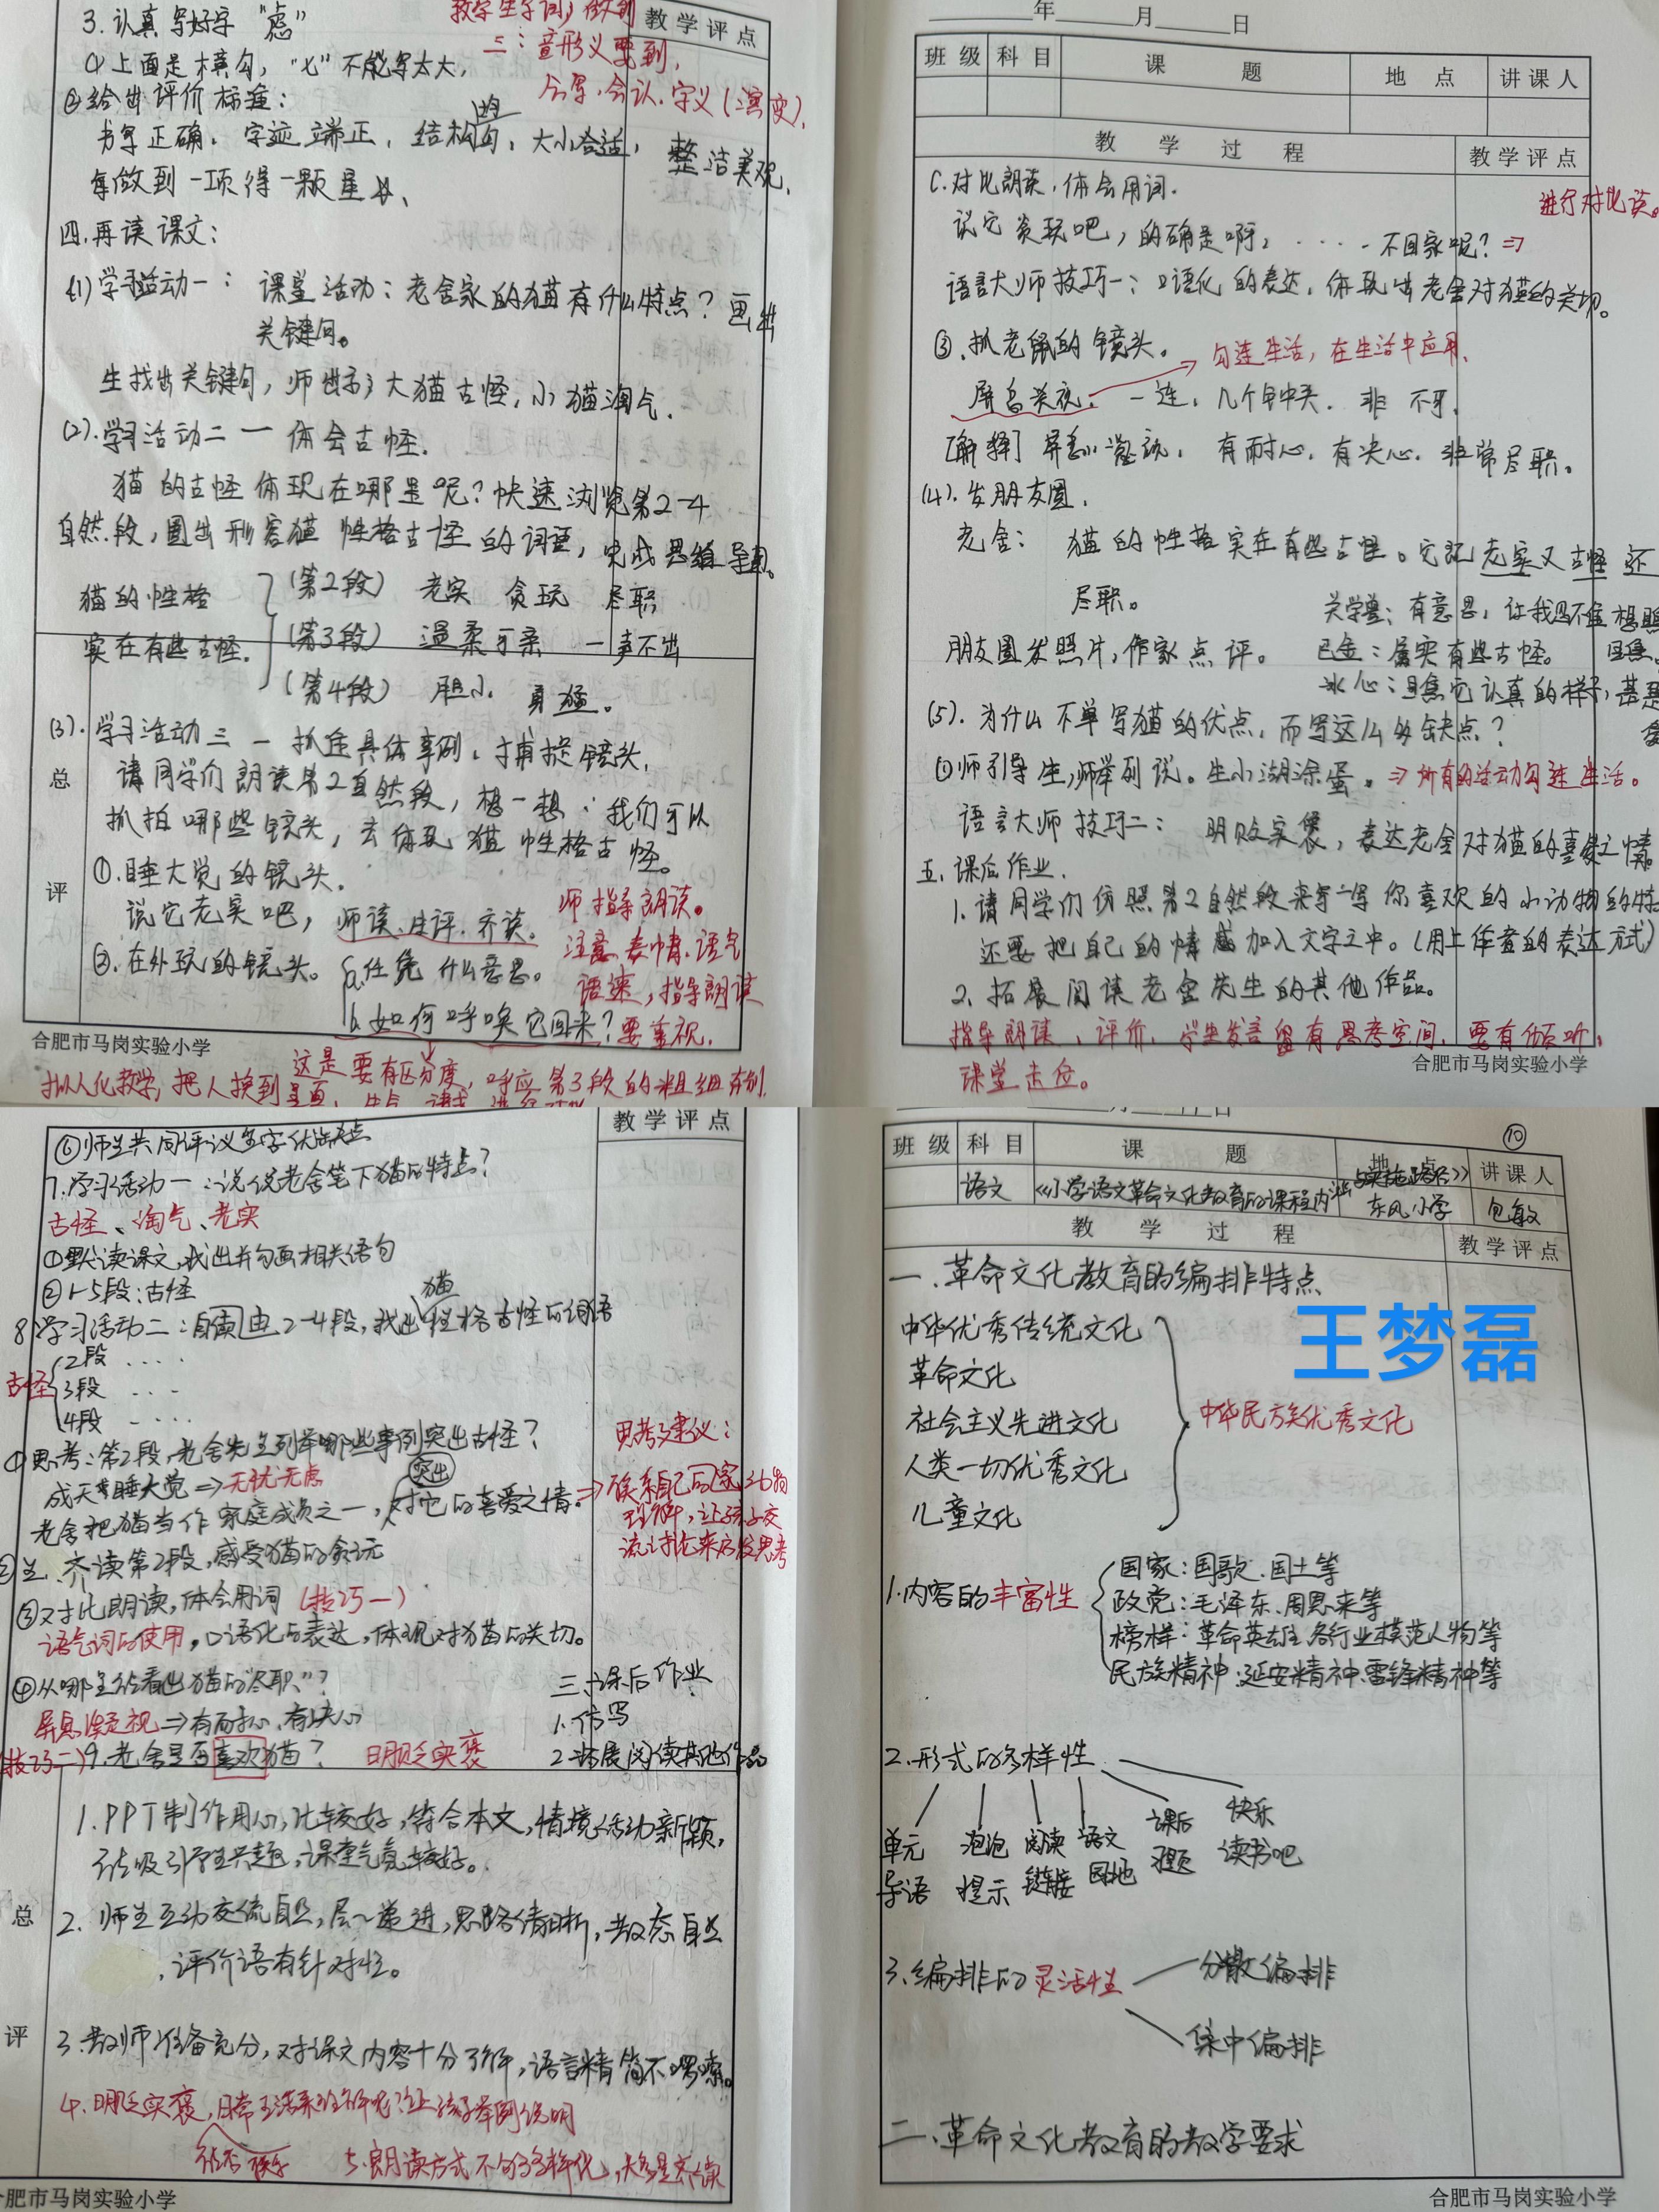 3.认真写好字“虑”
教学评点
(1)上面是横勾,“七”不能写太大,
三:音形义要到,
②给出评价标准:
会写,会认,字义(演变),
书写正确,字迹端正,结构匀,大小合适,整洁美观,
均
每做到一项得一颗星☆、
四.再读课文:
(1)学习活动一:课堂活动:老舍家的猫有什么特点?画出
关键句。
生找出关键句,师出示大猫古怪,小猫淘气.
(2).学习活动二一体会古怪.
猫的古怪体现在哪里呢?快速浏览第2-4
自然段,圈出形容猫性格古怪的词语,完成思维导图。
猫的性格
实在有些古怪.
(第2段) 老实 贪玩 尽职
(第3段) 温柔可亲 一声不出
(第4段) 胆小 勇猛。
(3).学习活动三一抓住具体事例,捕捉镜头,
请同学们朗读第2自然段,想一想:我们可以
抓拍哪些镜头,去体现猫性格古怪。
总
评
①.睡大觉的镜头.
说它老实吧,师读.生评.齐读。
师指导朗读。
注意表情.语气
语速,指导朗读
②.在外玩的镜头。a.任凭什么意思。
b.如何呼唤它回来?要重视.
合肥市马岗实验小学
这是要有区分度,呼应第3段的
拟人化教学,把人换到里面,
年 月 日
班级 科目 课题 地点 讲课人
教学过程 教学评点
C.对比朗读,体会用词.
进行对比读。
说它贪玩吧,的确是啊,....不回家呢?⇒
语言大师技巧一:口语化的表达,体现出老舍对猫的关切。
③.抓老鼠的镜头。
勾连生活,在生活中应用,
屏息凝视.一连,几个钟头.非 不可.
[解释] 屏息凝视,有耐心,有决心.非常尽职。
(4).发朋友圈.
老舍: 猫的性格实在有些古怪。它既老实又古怪还
尽职。
关学曾:有意思,让我
朋友圈发照片,作家点评。
巴金:属实有些古怪。
冰心:它认真的样子,甚是
(5).为什么不单写猫的优点,而写这么多缺点?
①师引导生,师举例说。生小湖涂蛋.⇒所有的活动勾连生活。
语言大师技巧二:明贬实褒,表达老舍对猫的喜爱之情。
五.课后作业.
1.请同学们仿照第2自然段来写一写你喜欢的小动物的特
还要把自己的情感加入文字之中。(用上作者的表达方式)
2.拓展阅读老舍先生的其他作品。
指导朗读,评价,学生发言留有思考空间,要有倾听,
课堂走位。
合肥市马岗实验小学
教学评点
⑥师生共同评议生字优缺点
7.学习活动一:说说老舍笔下猫的特点?
古怪、淘气、老实
①默读课文,找出并勾画相关语句
②1-5段:古怪
8.学习活动二:自由读2-4段,找出猫性格古怪的词语
古怪
2段....
3段...
4段....
①思考:第2段,老舍先生列举哪些事例突出古怪?
成天睡大觉⇒无忧无虑
老舍把猫当作家庭成员之一,突出对它的喜爱之情.
思考建议:
⇒联系自己的家动物
理解,让孩子交
流讨论来启发思考
②生齐读第2段,感受猫的贪玩
③对比朗读,体会用词(技巧一)
语气词的使用,口语化的表达,体现对猫的关切。
④从哪里能看出猫的“尽职”?
屏息凝视⇒有耐心、有决心
(技巧二)9.老舍是否喜欢猫? 明贬实褒
三.课后作业
1.仿写
2.拓展阅读其他作品
总
评
1.PPT制作用心,比较好,符合本文,情境活动新颖,
能吸引学生兴趣,课堂气氛较好。
2.师生互动交流自然,层层递进,思路清晰,教态自然
,评价语有针对性。
3.教师准备充分,对课文内容十分了解,语言精简不啰嗦。
4.明贬实褒,日常生活,让孩子举例说明
5.朗读方式不够多样化,大多是齐读
合肥市马岗实验小学
⑩
班级 科目 课题 地点 讲课人
语文 《小学语文革命文化教育的课程内涵与实施路径》 东风小学 包敏
教学过程 教学评点
一.革命文化教育的编排特点
王梦磊
中华优秀传统文化
革命文化
社会主义先进文化
人类一切优秀文化
儿童文化
中华民族优秀文化
1.内容的丰富性
国家:国歌.国土等
政党:毛泽东、周恩来等
榜样:革命英雄、各行业模范人物等
民族精神:延安精神.雷锋精神等
2.形式的多样性
单元导语
泡泡提示
阅读链接
语文园地
课后习题
快乐读书吧
3.编排的灵活性
分散编排
集中编排
二.革命文化教育的教学要求
合肥市马岗实验小学